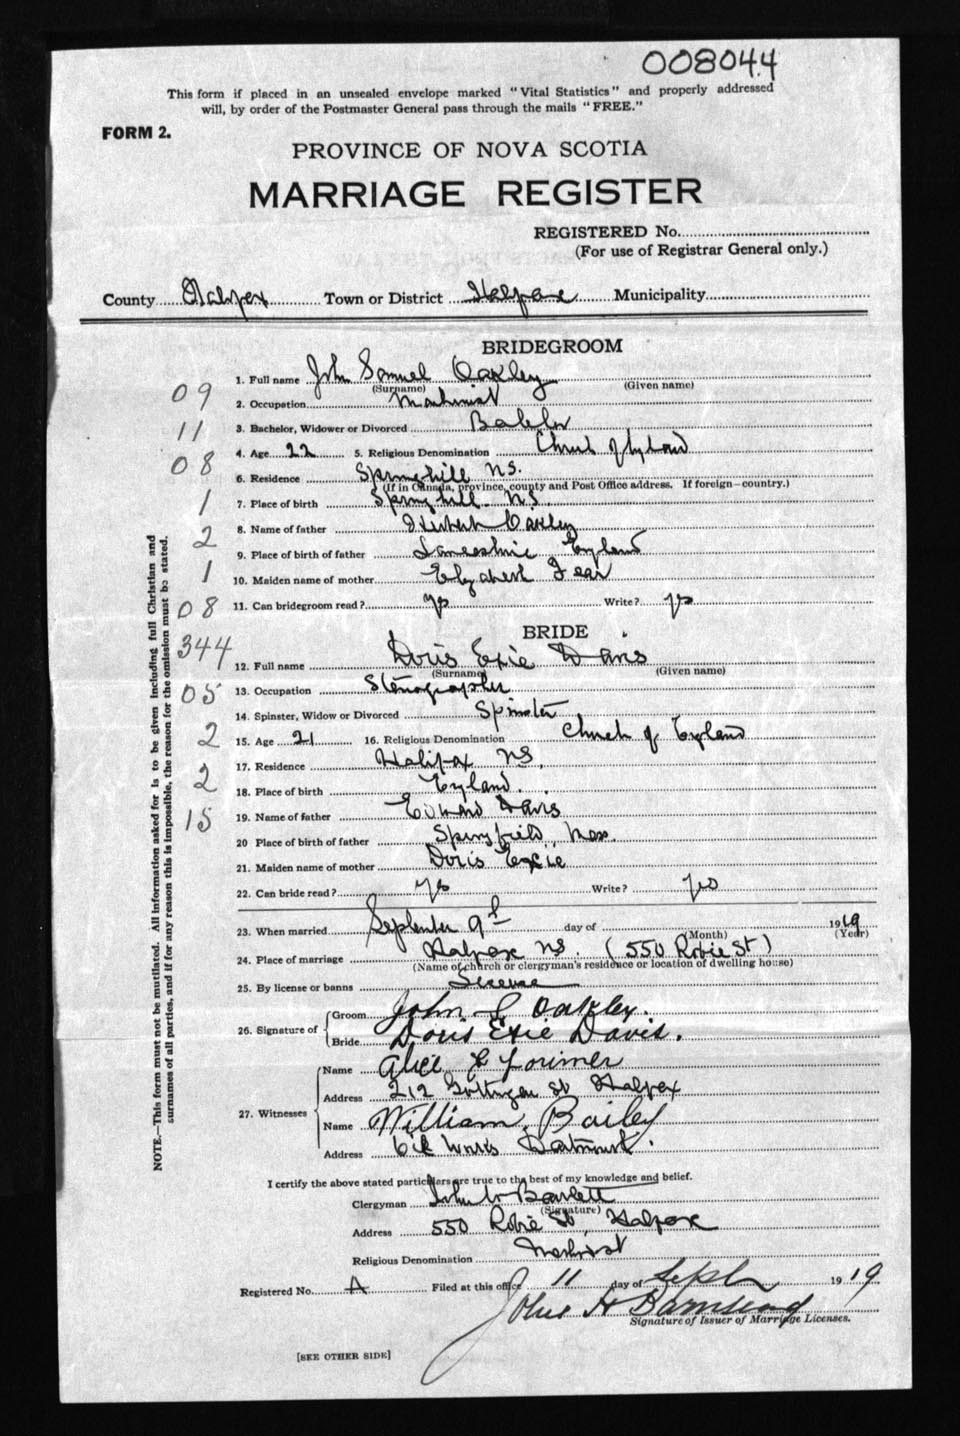 008044
This form if placed in an unsealed envelope marked "Vital Statistics" and properly addressed
will, by order of the Postmaster General pass through the mails "FREE."
FORM 2.
PROVINCE OF NOVA SCOTIA
MARRIAGE REGISTER
REGISTERED No.
(For use of Registrar General only.)
County Halifax Town or District Halifax Municipality
BRIDEGROOM
1. Full name John Samuel Oakley
(Surname) (Given name)
09
2. Occupation Machinist
3. Bachelor, Widower or Divorced Bachelor
11
4. Age 22 5. Religious Denomination Church of England
08
6. Residence Springhill N.S.
(If in Canada, province, county and Post Office address. If foreign—country.)
1
7. Place of birth Springhill N.S
8. Name of father Herbert Oakley
2
9. Place of birth of father Lancashire England
1
10. Maiden name of mother Elizabeth Fear
08
11. Can bridegroom read? yes Write? yes
BRIDE
344
12. Full name Doris Exie Davis
(Surname) (Given name)
05
13. Occupation Stenographer
14. Spinster, Widow or Divorced Spinster
2
15. Age 21 16. Religious Denomination Church of England
17. Residence Halifax N.S.
2
18. Place of birth England.
15
19. Name of father Edward Davis
20 Place of birth of father Springfield, Mass.
21. Maiden name of mother Doris Exie
22. Can bride read? yes Write? yes
23. When married September 9th day of 1919
(Month) (Year)
24. Place of marriage Halifax N.S. (550 Robie St)
(Name of church or clergyman's residence or location of dwelling house)
25. By license or banns License
26. Signature of Groom John S Oakley.
Bride Doris Exie Davis.
27. Witnesses
Name Alice Lorimer
Address 212 Gottingen St Halifax
Name William Bailey
Address Oil Works Dartmouth.
I certify the above stated particulars are true to the best of my knowledge and belief.
Clergyman John W Bartlett
(Signature)
Address 550 Robie St, Halifax
Religious Denomination Methodist
Registered No. A Filed at this office 11 day of Sept 1919
John H Barnstead
Signature of Issuer of Marriage Licenses.
[SEE OTHER SIDE]
NOTE.—This form must not be mutilated. All information asked for is to be given including full Christian and
surnames of all parties, and if for any reason this is impossible, the reason for the omission must be stated.